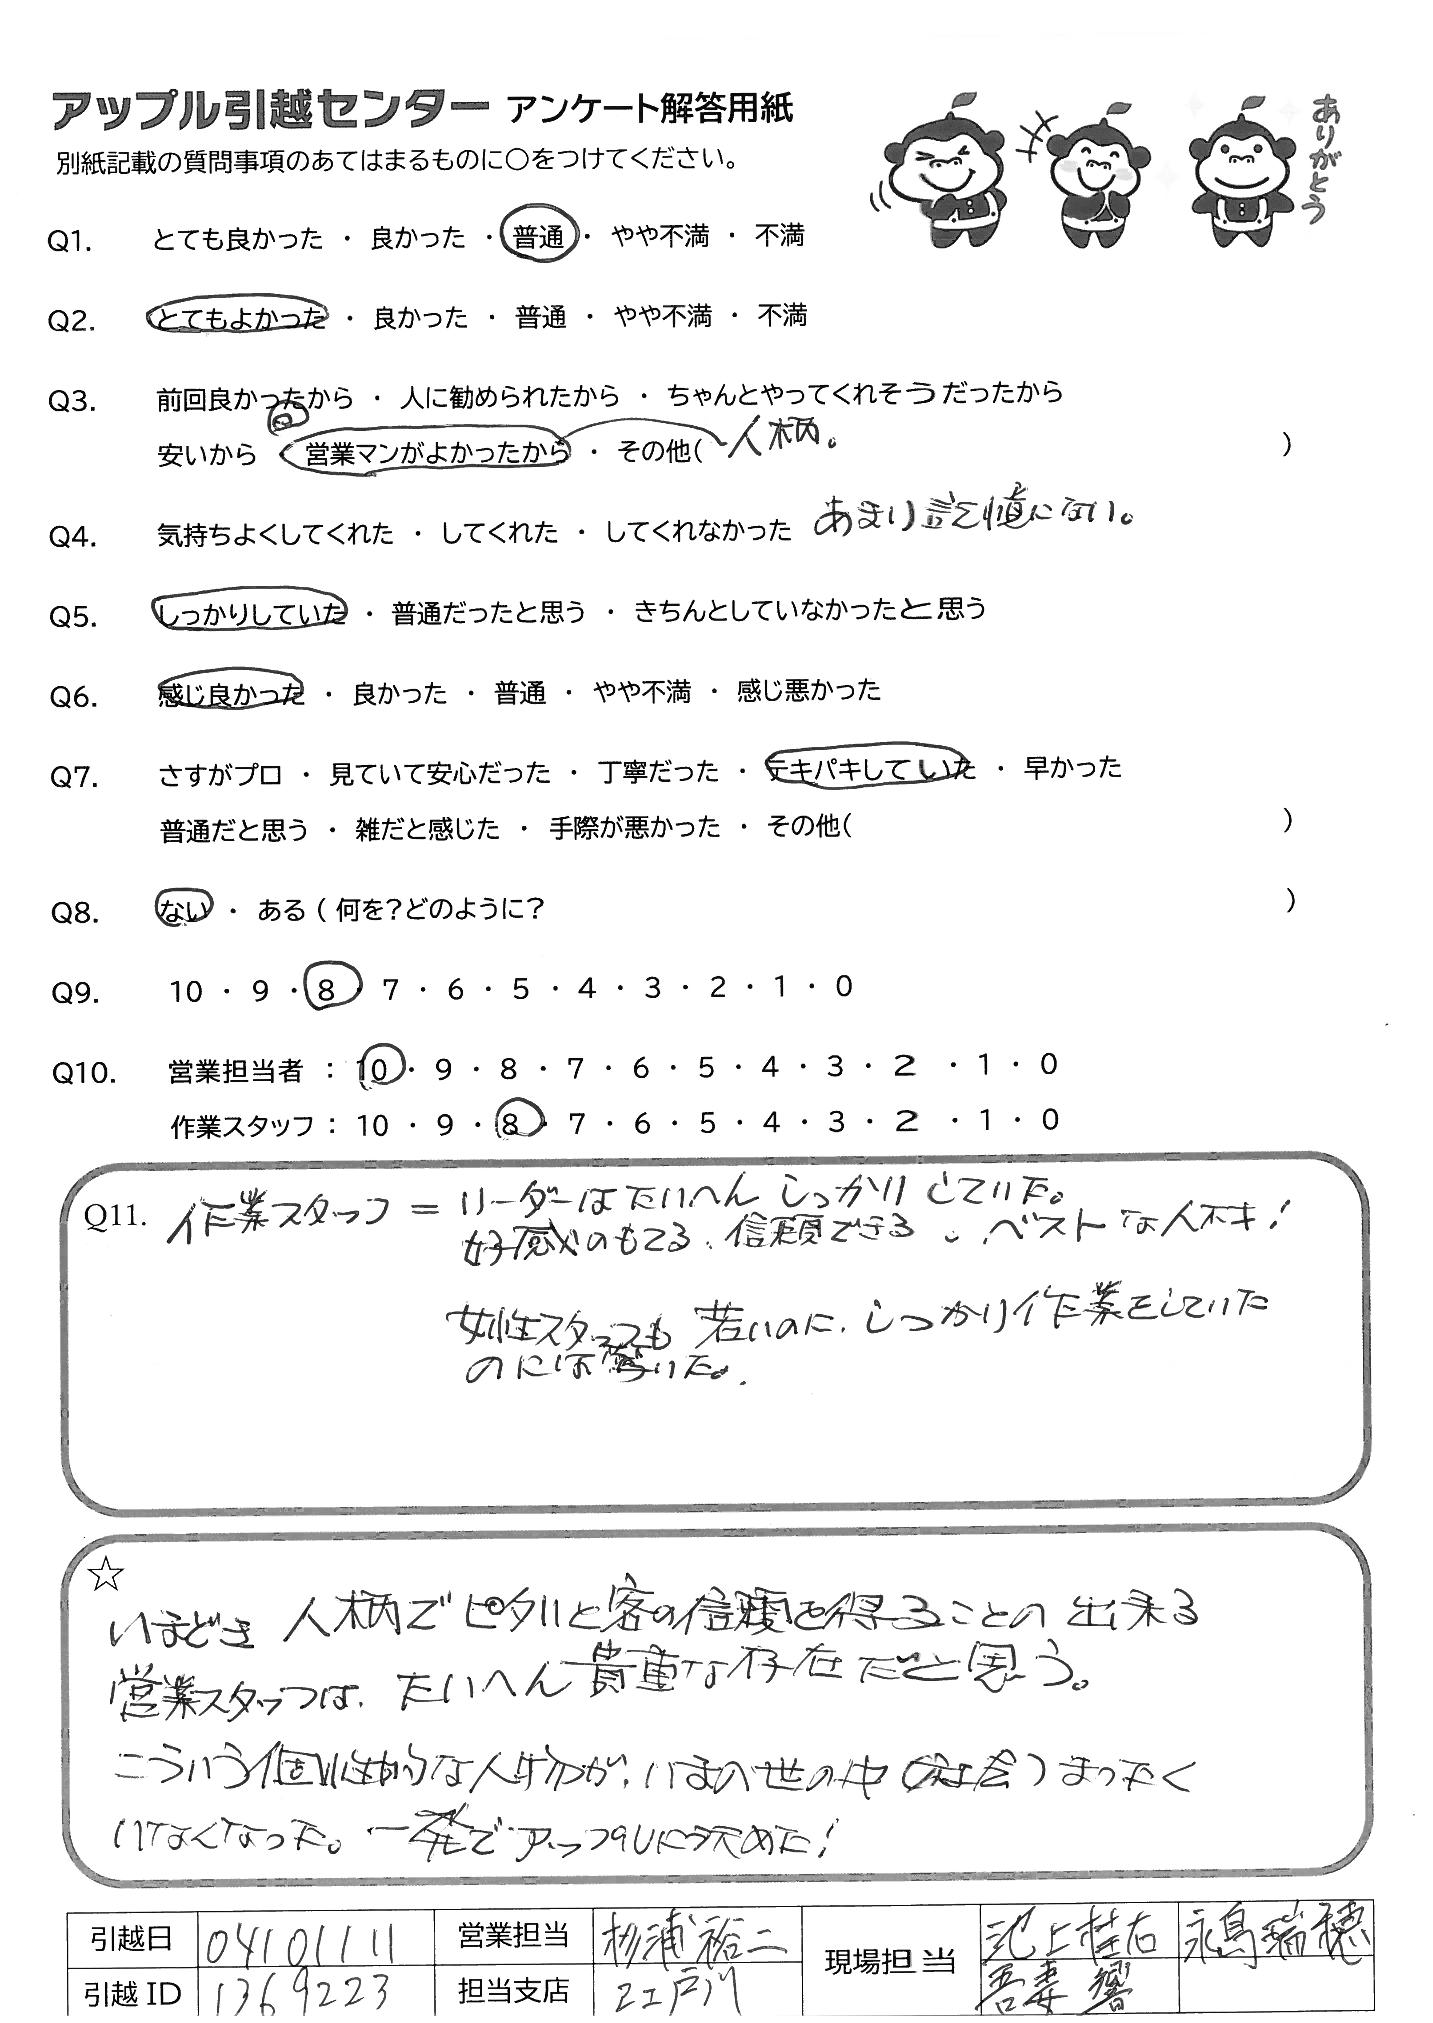 アップル引越センター アンケート解答用紙
ありがとう
別紙記載の質問事項のあてはまるものに○をつけてください。
Q1. とても良かった ・ 良かった ・ 普通 ・ やや不満 ・ 不満
Q2. とてもよかった ・ 良かった ・ 普通 ・ やや不満 ・ 不満
Q3. 前回良かったから ・ 人に勧められたから ・ ちゃんとやってくれそうだったから
安いから 営業マンがよかったから ・ その他( 人柄。 )
Q4. 気持ちよくしてくれた ・ してくれた ・ してくれなかった あまり記憶にない。
Q5. しっかりしていた ・ 普通だったと思う ・ きちんとしていなかったと思う
Q6. 感じ良かった ・ 良かった ・ 普通 ・ やや不満 ・ 感じ悪かった
Q7. さすがプロ ・ 見ていて安心だった ・ 丁寧だった ・ テキパキしていた ・ 早かった
普通だと思う ・ 雑だと感じた ・ 手際が悪かった ・ その他( )
Q8. ない ・ ある ( 何を？どのように？ )
Q9. 10 ・ 9 ・ 8 ・ 7 ・ 6 ・ 5 ・ 4 ・ 3 ・ 2 ・ 1 ・ 0
Q10. 営業担当者 : 10 ・ 9 ・ 8 ・ 7 ・ 6 ・ 5 ・ 4 ・ 3 ・ 2 ・ 1 ・ 0
作業スタッフ : 10 ・ 9 ・ 8 ・ 7 ・ 6 ・ 5 ・ 4 ・ 3 ・ 2 ・ 1 ・ 0
Q11. 作業スタッフ = リーダーはたいへんしっかりしていた。
好感のもてる、信頼できる、ベストな人材!
女性スタッフも若いのに、しっかり作業をしていた
のには驚いた。
☆
いまどき人柄でピタリと客の信頼を得ることの出来る
営業スタッフは、たいへん貴重な存在だと思う。
こういう個性的な人物が、いまの世の中(社会)まったく
いなくなった。一発でアップルに決めた!
引越日 04101111 営業担当 杉浦裕二 現場担当 池上桂右 永島瑞穂
引越ID 1369223 担当支店 江戸川 吾妻響